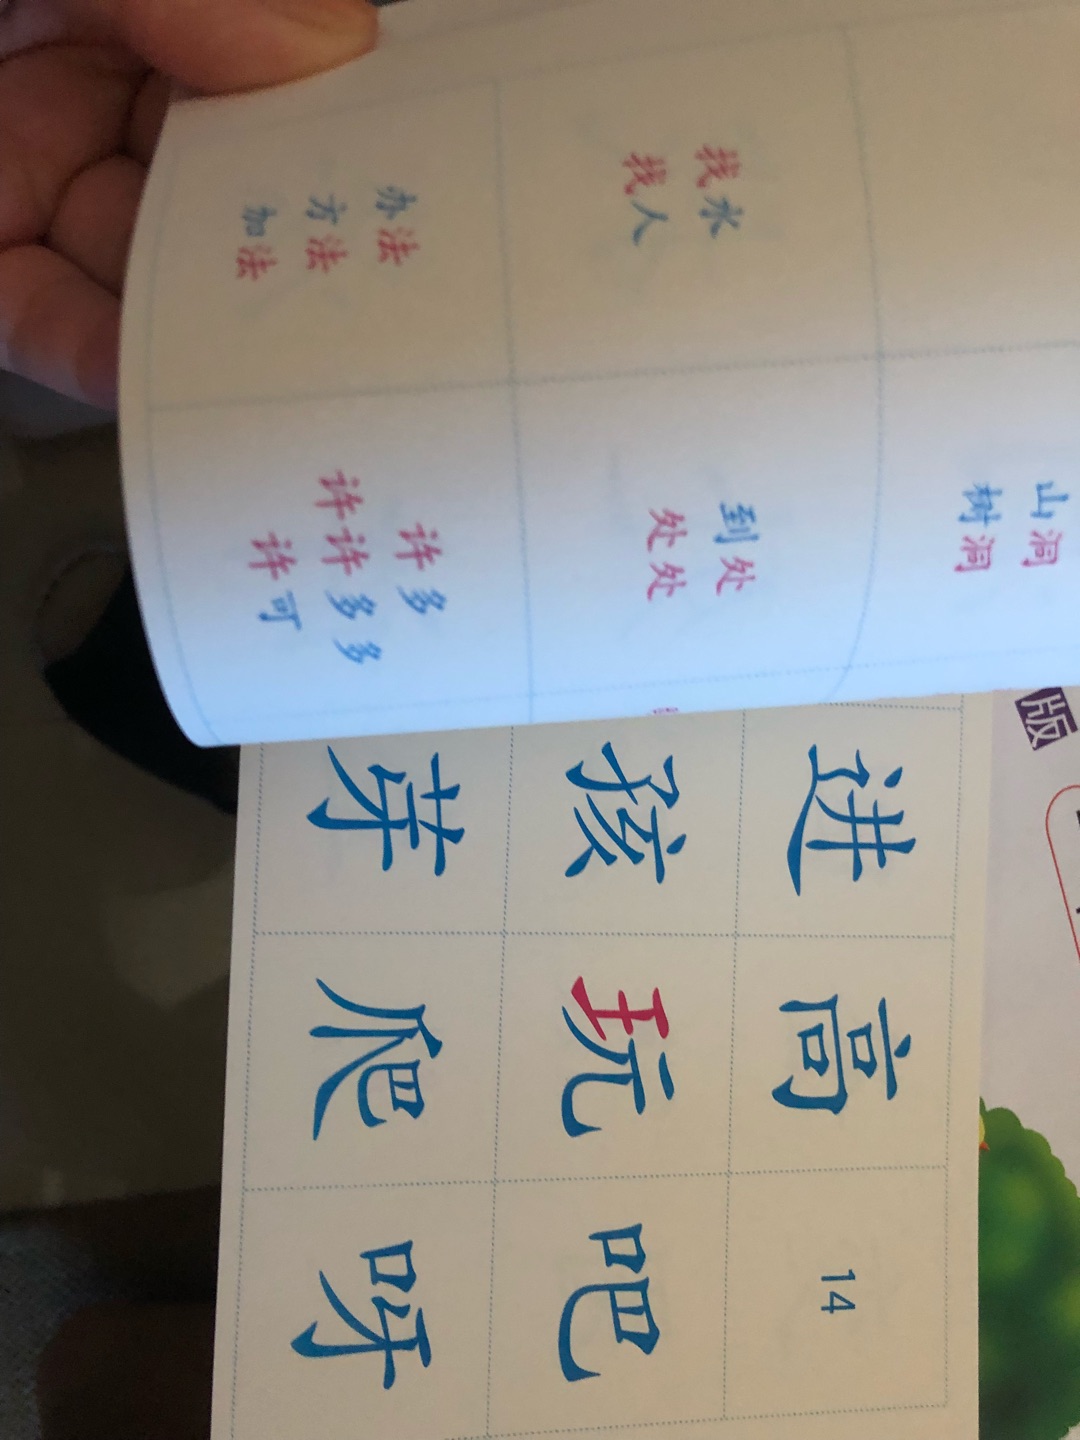 山洞
树洞
找水
找人
到处
处处
办法
方法
加法
许多
许许多多
许可
版
进 高 14
孩 玩 吧
芽 爬 呀